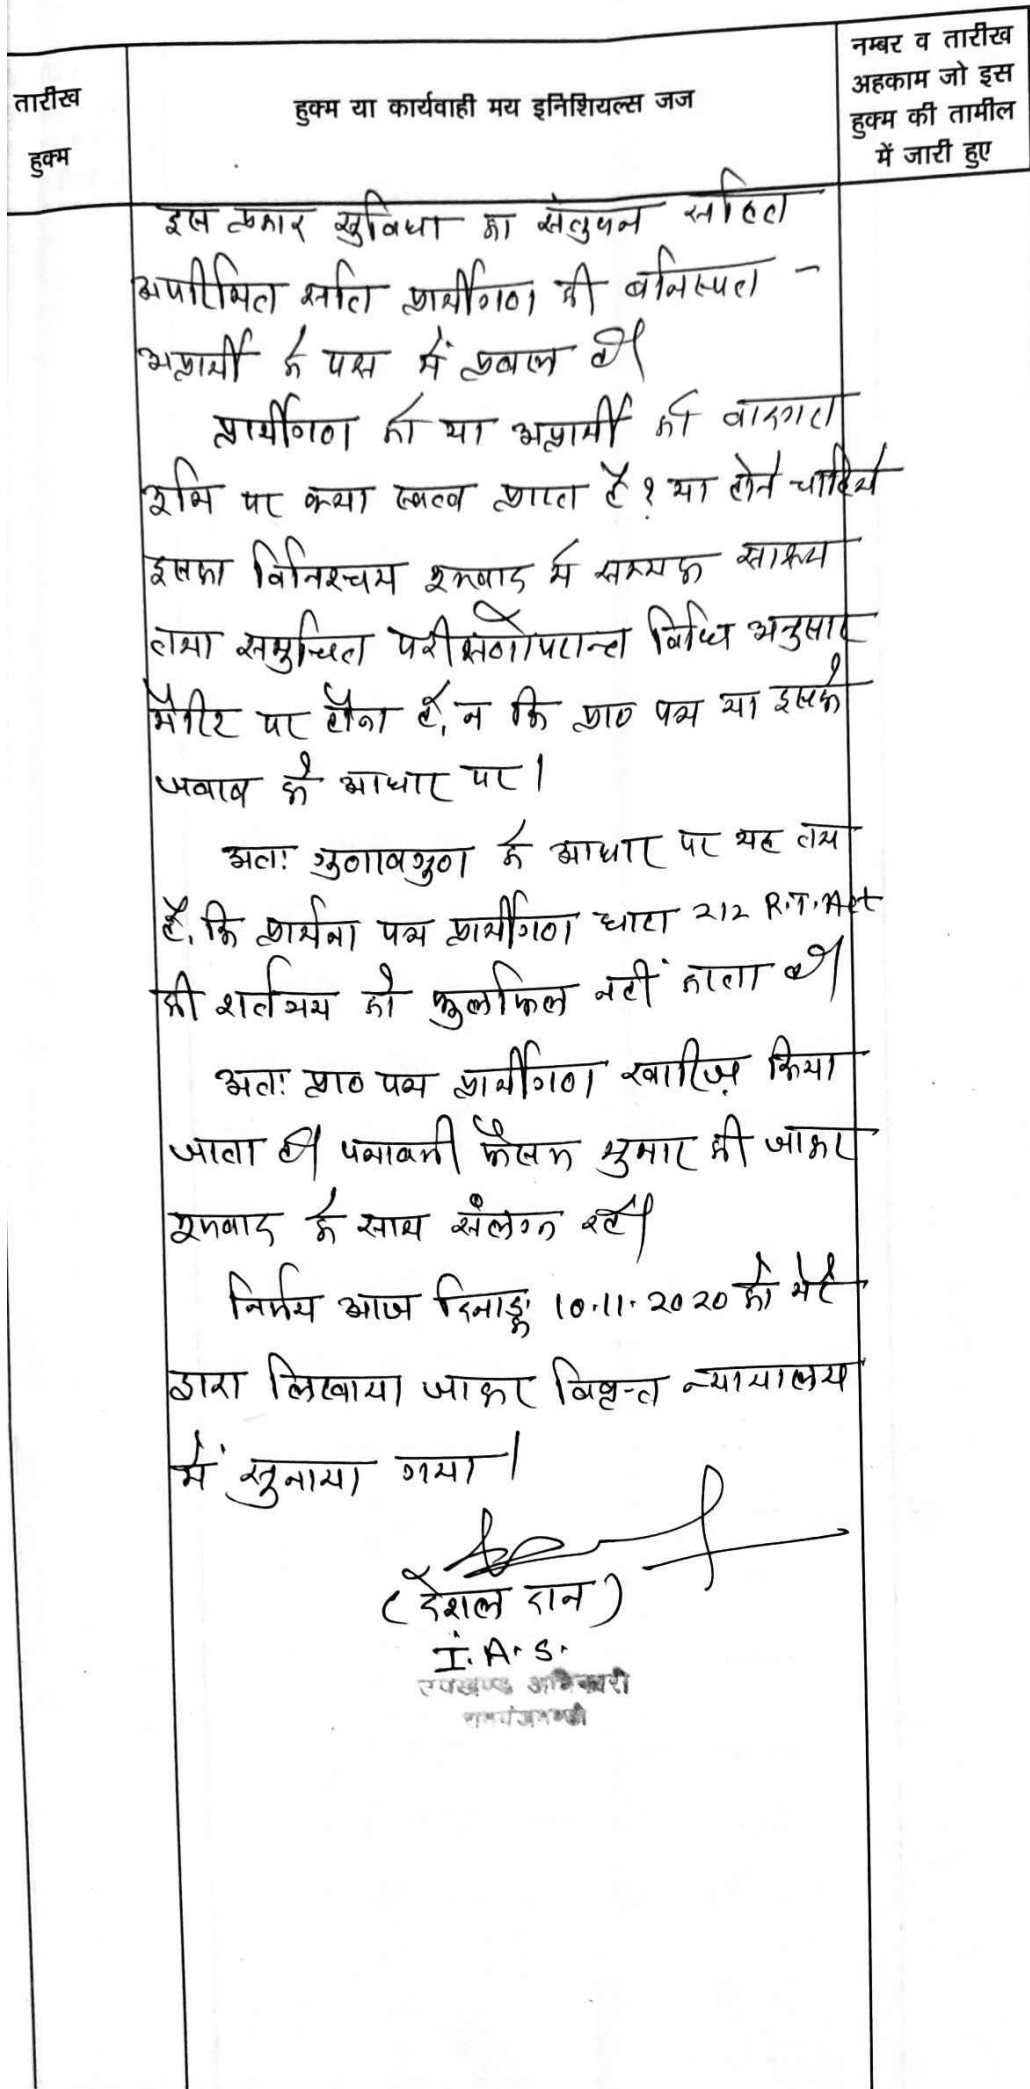 तारीख
हुक्म
हुक्म या कार्यवाही मय इनिशियल्स जज
नम्बर व तारीख
अहकाम जो इस
हुक्म की तामील
में जारी हुए
इस प्रकार सुविधा का संतुलन सहित
अपरिमित क्षति प्रार्थीगण की बनिस्पत -
अप्रार्थी के पक्ष में प्रबल है।
प्रार्थीगण को या अप्रार्थी को वादग्रस्त
भूमि पर क्या स्वत्व प्राप्त है? या होने चाहिये
इसका विनिश्चय मूलवाद में सम्यक साक्ष्य
तथा समुचित परीक्षणोपरान्त विधि अनुसार
मैरिट पर होना है, न कि प्रा० पत्र या इसके
जवाब के आधार पर।
अतः गुणावगुण के आधार पर यह तय
है, कि प्रार्थना पत्र प्रार्थीगण धारा 212 R.T. Act
की शर्तत्रय को फुलफिल नहीं करता है।
अतः प्रा० पत्र प्रार्थीगण खारिज़ किया
जाता है। पत्रावली फैसल शुमार की जाकर
मूलवाद के साथ संलग्न रहे।
निर्णय आज दिनाङ्क 10.11.2020 को मेरे
द्वारा लिखवाया जाकर विवृत्त न्यायालय
में सुनाया गया।
(देशल दान)
I.A.S.
उपखण्ड अधिकारी
रामगंजमण्डी